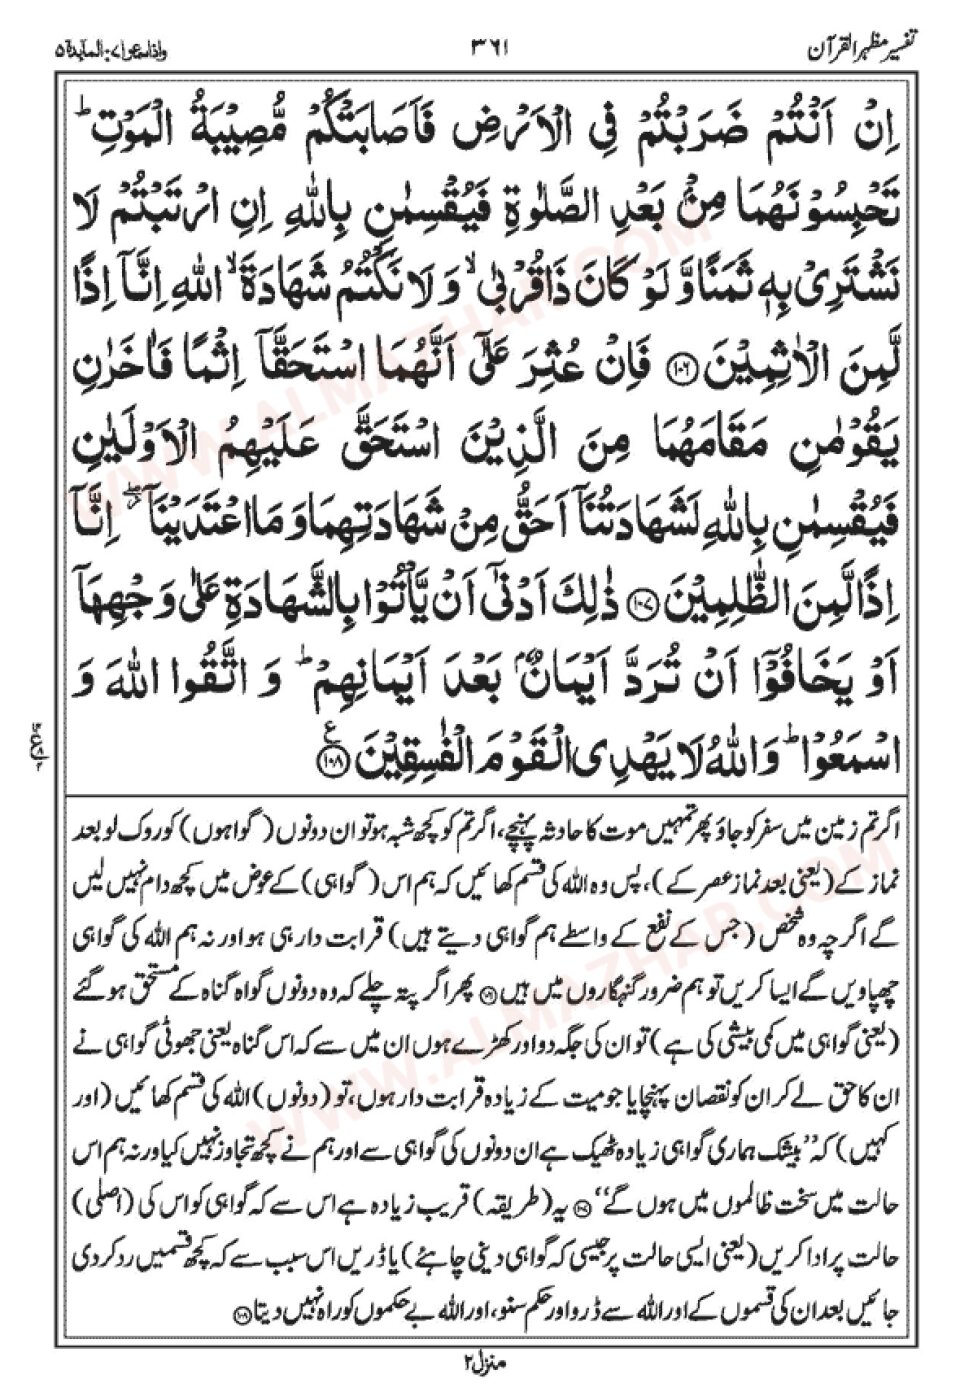 تفسیر مظہر القرآن ۳۶۱ واذاسمعوا۷: المآئدۃ۵
اِنْ اَنْتُمْ ضَرَبْتُمْ فِی الْاَرْضِ فَاَصَابَتْكُمْ مُّصِیْبَةُ الْمَوْتِ ؕ
تَحْبِسُوْنَهُمَا مِنْۢ بَعْدِ الصَّلٰوةِ فَیُقْسِمٰنِ بِاللّٰهِ اِنِ ارْتَبْتُمْ لَا
نَشْتَرِیْ بِهٖ ثَمَنًا وَّ لَوْ كَانَ ذَا قُرْبٰی ۙ وَ لَا نَكْتُمُ شَهَادَةَ ۙ اللّٰهِ اِنَّاۤ اِذًا
لَّمِنَ الْاٰثِمِیْنَ ﴿۱۰۶﴾ فَاِنْ عُثِرَ عَلٰۤی اَنَّهُمَا اسْتَحَقَّاۤ اِثْمًا فَاٰخَرٰنِ
یَقُوْمٰنِ مَقَامَهُمَا مِنَ الَّذِیْنَ اسْتَحَقَّ عَلَیْهِمُ الْاَوْلَیٰنِ
فَیُقْسِمٰنِ بِاللّٰهِ لَشَهَادَتُنَاۤ اَحَقُّ مِنْ شَهَادَتِهِمَا وَ مَا اعْتَدَیْنَاۤ ۖ اِنَّاۤ
اِذًا لَّمِنَ الظّٰلِمِیْنَ ﴿۱۰۷﴾ ذٰلِكَ اَدْنٰۤی اَنْ یَّاْتُوْا بِالشَّهَادَةِ عَلٰی وَجْهِهَاۤ
اَوْ یَخَافُوْۤا اَنْ تُرَدَّ اَیْمَانٌۢ بَعْدَ اَیْمَانِهِمْ ؕ وَ اتَّقُوا اللّٰهَ وَ
اسْمَعُوْا ؕ وَ اللّٰهُ لَا یَهْدِی الْقَوْمَ الْفٰسِقِیْنَ ﴿۱۰۸﴾ ع
اگر تم زمین میں سفر کو جاؤ پھر تمہیں موت کا حادثہ پہنچے، اگر تم کو کچھ شبہ ہو تو ان دونوں (گواہوں) کو روک لو بعد
نماز کے (یعنی بعد نماز عصر کے)، پس وہ اللہ کی قسم کھائیں کہ ہم اس (گواہی) کے عوض میں کچھ دام نہیں لیں
گے اگرچہ وہ شخص (جس کے نفع کے واسطے ہم گواہی دیتے ہیں) قرابت دار ہی ہو اور نہ ہم اللہ کی گواہی
چھپاویں گے ایسا کریں تو ہم ضرور گنہگاروں میں ہیں ﴿۱۰۶﴾ پھر اگر پتہ چلے کہ وہ دونوں گواہ گناہ کے مستحق ہو گئے
(یعنی گواہی میں کمی بیشی کی ہے) تو ان کی جگہ دو اور کھڑے ہوں ان میں سے کہ اس گناہ یعنی جھوٹی گواہی نے
ان کا حق لے کر ان کو نقصان پہنچایا جو میت کے زیادہ قرابت دار ہوں، تو (دونوں) اللہ کی قسم کھائیں (اور
کہیں) کہ ”بیشک ہماری گواہی زیادہ ٹھیک ہے ان دونوں کی گواہی سے اور ہم نے کچھ تجاوز نہیں کیا ورنہ ہم اس
حالت میں سخت ظالموں میں ہوں گے“ ﴿۱۰۷﴾ یہ (طریقہ) قریب زیادہ ہے اس سے کہ گواہی کو اس کی (اصلی)
حالت پر ادا کریں (یعنی ایسی حالت پر جیسی کہ گواہی دینی چاہئے) یا ڈریں اس سبب سے کہ کچھ قسمیں رد کر دی
جائیں بعد ان کی قسموں کے اور اللہ سے ڈرو اور حکم سنو، اور اللہ بے حکموں کو راہ نہیں دیتا ﴿۱۰۸﴾
منزل۲
WWW.ALMAZHAR.COM
WWW.ALMAZHAR.COM